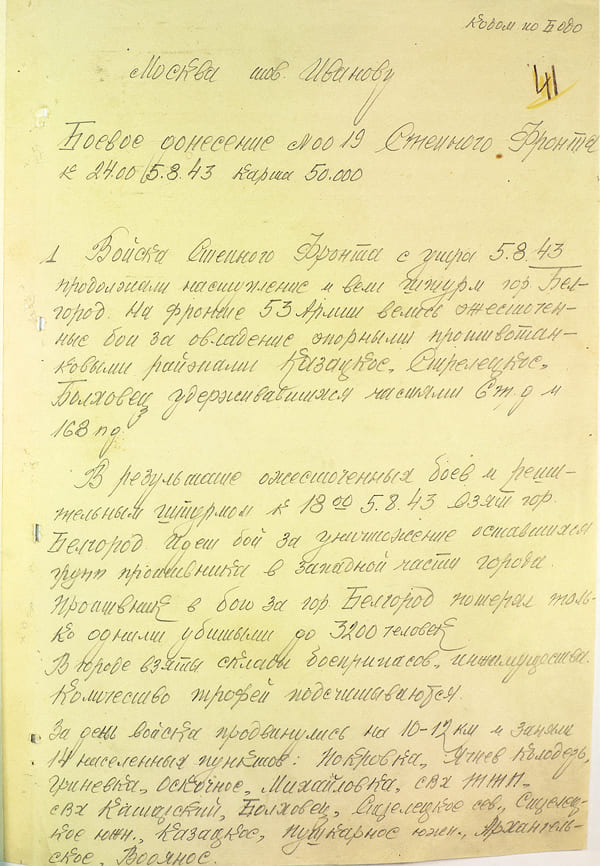 Кодом по Бодо
Москва тов. Иванову
41
Боевое донесение №0019 Степного Фронта
к 24.00 5.8.43 карта 50.000
1 Войска Степного Фронта с утра 5.8.43
продолжали наступление и вели штурм гор. Бел-
город. На фронте 53 Армии велись ожесточен-
ные бои за овладение опорными противотан-
ковыми районами Казацкое, Стрелецкое,
Болховец удерживавшихся частями 6 т.д и
168 пд.
В результате ожесточенных боев и реши-
тельным штурмом к 18 00 5.8.43 взят гор.
Белгород. Идет бой за уничтожение оставшихся
групп противника в западной части города.
Противник в бою за гор. Белгород потерял толь-
ко одними убитыми до 3200 человек
В городе взяты склады боеприпасов, инжимущества.
Количество трофей подсчитываются.
За день войска продвинулись на 10-12 км и заняли
14 населенных пунктов: Покровка, Ячнев Колодезь,
Гриневка, Оскочное, Михайловка, свх МТП,
свх Кашарский, Болховец, Стрелецкое сев., Стрелец-
кое южн., Казацкое, Пушкарное южн., Архангель-
ское, Водяное.